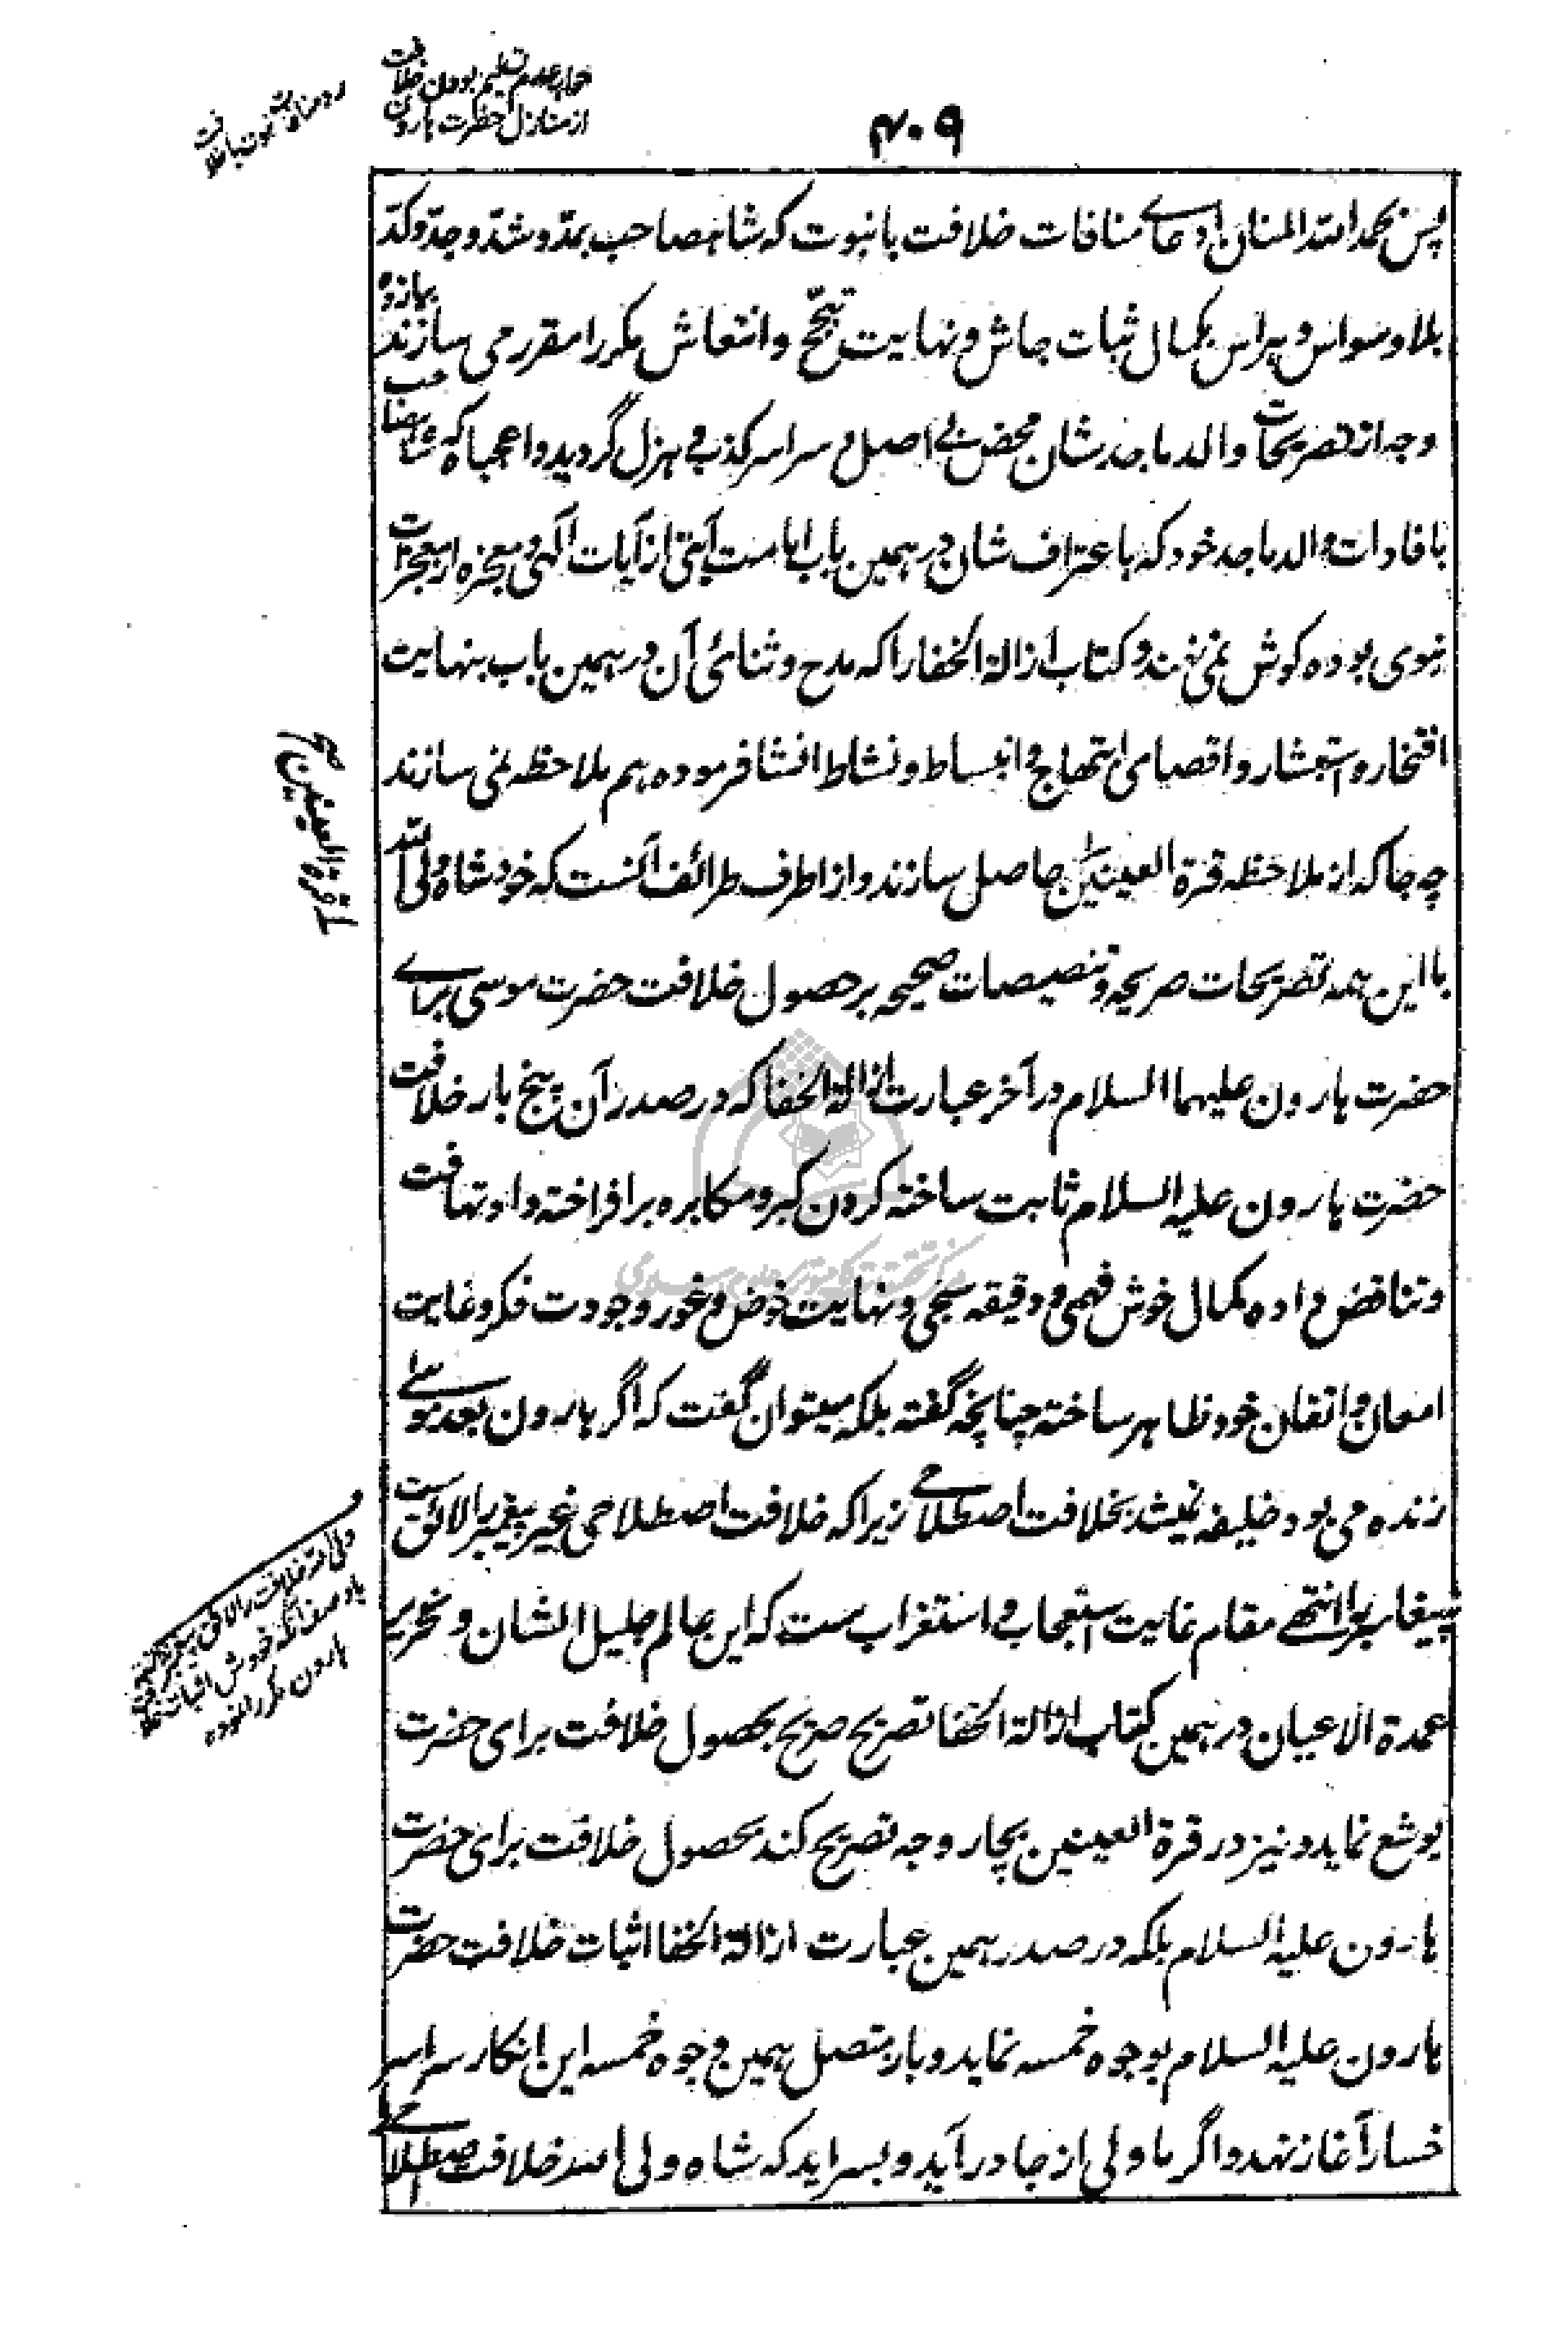 ۴۰۹
جواب عدم تسلیم بودن خلافت
از منازل حضرت هارون
رد منافات نبوت با خلافت
پس بحمد الله المنان ادعاے منافات خلافت با نبوت که شاهصاحب بمدّ و شدّ و جدّ و کدّ
بلا وسواس و هراس بکمال ثبات جاش و نهایت تبجّح و انتعاش مکررا مقرر می سازند بیازده
وجه از تصریحات والد ماجد شان محض بی اصل و سراسر کذب و هزل گردید و اعجباه که شاهصاحب
بافادات والد ماجد خود که باعتراف شان در همین باب امامت آیتی از آیات الهی و معجزه از معجزات
نبوی بوده گوش نمی نهند و کتاب ازالة الخفا را که مدح و ثنائی آن در همین باب بنهایت
افتخار و استبشار و اقصای ابتهاج و انبساط و نشاط انشا فرموده هم ملاحظه نمی سازند
چه جا که از ملاحظه قرة العینین حاصل سازند و از اطرف طرائف آنست که خود شاه ولی الله
با این همه تصریحات صریحه و تنصیصات صحیحه بر حصول خلافت حضرت موسی براے
حضرت هارون علیهما السلام در آخر عبارت ازالة الخفا که در صدر آن پنج بار خلافت
حضرت هارون علیه السلام ثابت ساخته گردن کبر و مکابره بر افراخته داد تهافت
و تناقض داده کمال خوش فهمی و دقیقه سنجی و نهایت خوض و غور و جودت فکر و غایت
امعان و اتقان خود ظاهر ساخته چنانچه گفته بلکه میتوان گفت که اگر هارون بعد موسے
زنده می بود خلیفه نمیشد بخلافت اصطلاحے زیرا که خلافت اصطلاحی غیر پیغمبر را لائق ست
پیغامبر بود انتهے مقام نهایت استعجاب و استغراب ست که این عالم جلیل الشان و نحریر
عمدة الاعیان در همین کتاب ازالة الخفا تصریح صریح بحصول خلافت برای حضرت
یوشع نماید و نیز در قرة العینین بچار وجه تصریح کند بحصول خلافت برای حضرت
هارون علیه السلام بلکه در صدر همین عبارت ازالة الخفا اثبات خلافت حضرت
هارون علیه السلام بوجوه خمسه نماید و باز متصل همین وجوه خمسه این انکار سراسر
خسار آغاز نهد و اگر ماولی از جا در آید و بسراید که شاه ولی الله خلافت اصطلاحے
قرة العینین
هارون مکررا نموده